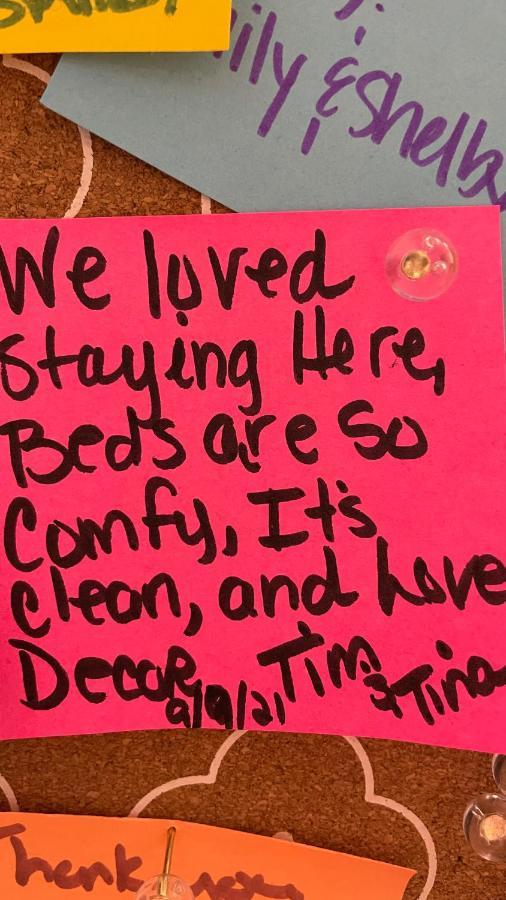 ily & Shelby
We loved
staying Here,
Beds are so
Comfy, It's
clean, and Love
Decor, Tim
& Tina
9/9/21
Thank you